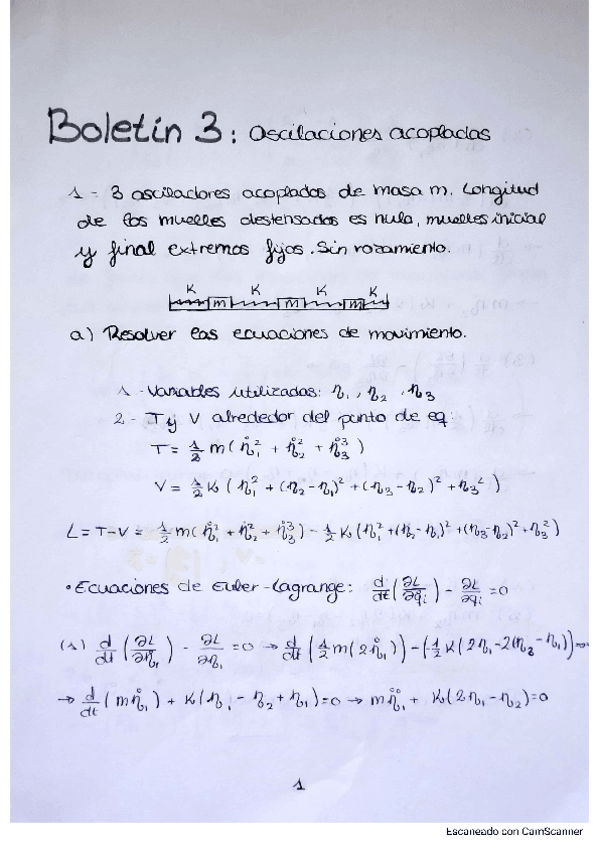 Boletín 3: Oscilaciones acopladas
1 - 3 osciladores acoplados de masa m. Longitud
de los muelles destensados es nula, muelles inicial
y final extremos fijos. Sin rozamiento.
K K K K
m m m
a) Resolver las ecuaciones de movimiento.
1 - Variables utilizadas: η₁, η₂, η₃
2 - T y V alrededor del punto de eq:
T = 1/2 m(η̊₁² + η̊₂² + η̊₃³)
V = 1/2 K (η₁² + (η₂ - η₁)² + (η₃ - η₂)² + η₃²)
L = T-V = 1/2 m(η̊₁² + η̊₂² + η̊₃³) - 1/2 K (η₁² + (η₂ - η₁)² + (η₃ - η₂)² + η₃²)
• Ecuaciones de Euler-Lagrange: d/dt (∂L/∂q̊ᵢ) - ∂L/∂qᵢ = 0
(1) d/dt (∂L/∂η̊₁) - ∂L/∂η₁ = 0 → d/dt (1/2 m(2η̊₁)) - (-1/2 K(2η₁ - 2(η₂ - η₁))) = 0
→ d/dt (mη̊₁) + K(η₁ - η₂ + η₁) = 0 → mη̊̊₁ + K(2η₁ - η₂) = 0
1
Escaneado con CamScanner